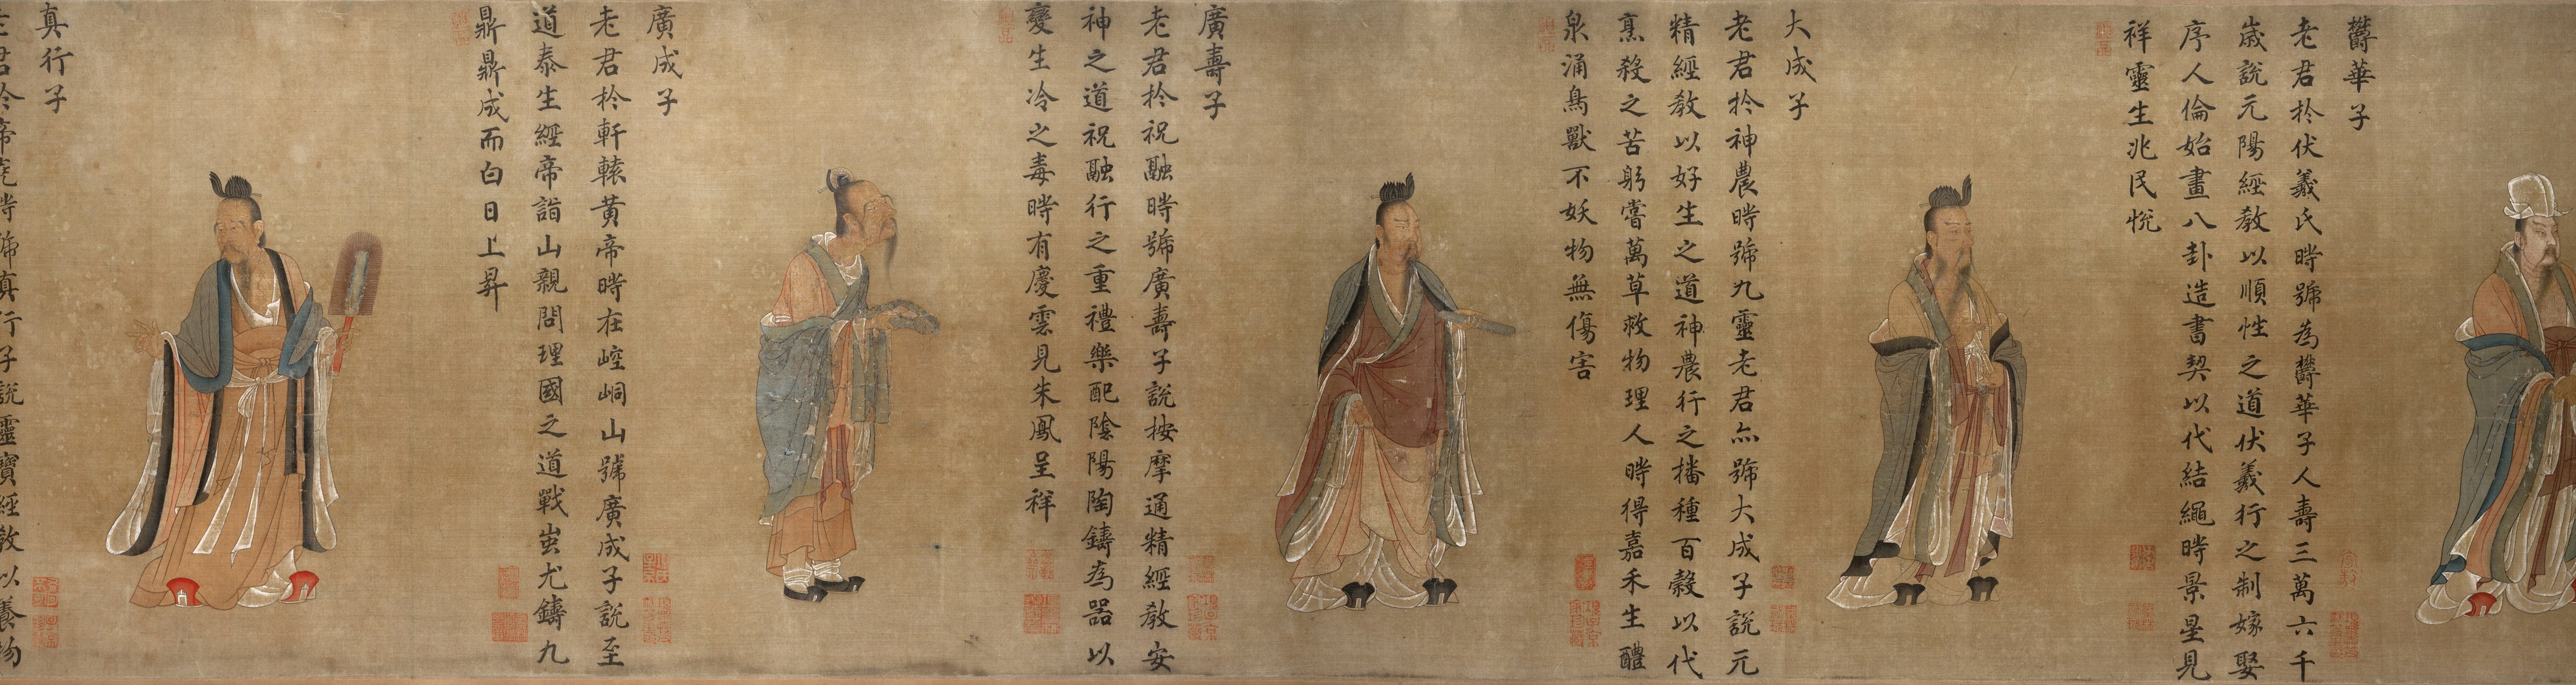 欝華子
老君於伏羲氏時號為欝華子人壽三萬六千
歳說元陽經教以順性之道伏羲行之制嫁娶
序人倫始畫八卦造書契以代結繩時景星見
祥靈生兆民悅
大成子
老君於神農時號九靈老君亦號大成子說元
精經教以好生之道神農行之播種百穀以代
烹殺之苦躬嘗萬草救物理人時得嘉禾生醴
泉涌鳥獸不妖物無傷害
廣壽子
老君於祝融時號廣壽子說按摩通精經教安
神之道祝融行之重禮樂配陰陽陶鑄為器以
變生冷之毒時有慶雲見朱鳳呈祥
廣成子
老君於軒轅黃帝時在崆峒山號廣成子說至
道泰生經帝詣山親問理國之道戰蚩尤鑄九
鼎鼎成而白日上昇
真行子
老君於帝時號真行子說靈寶經教以養物